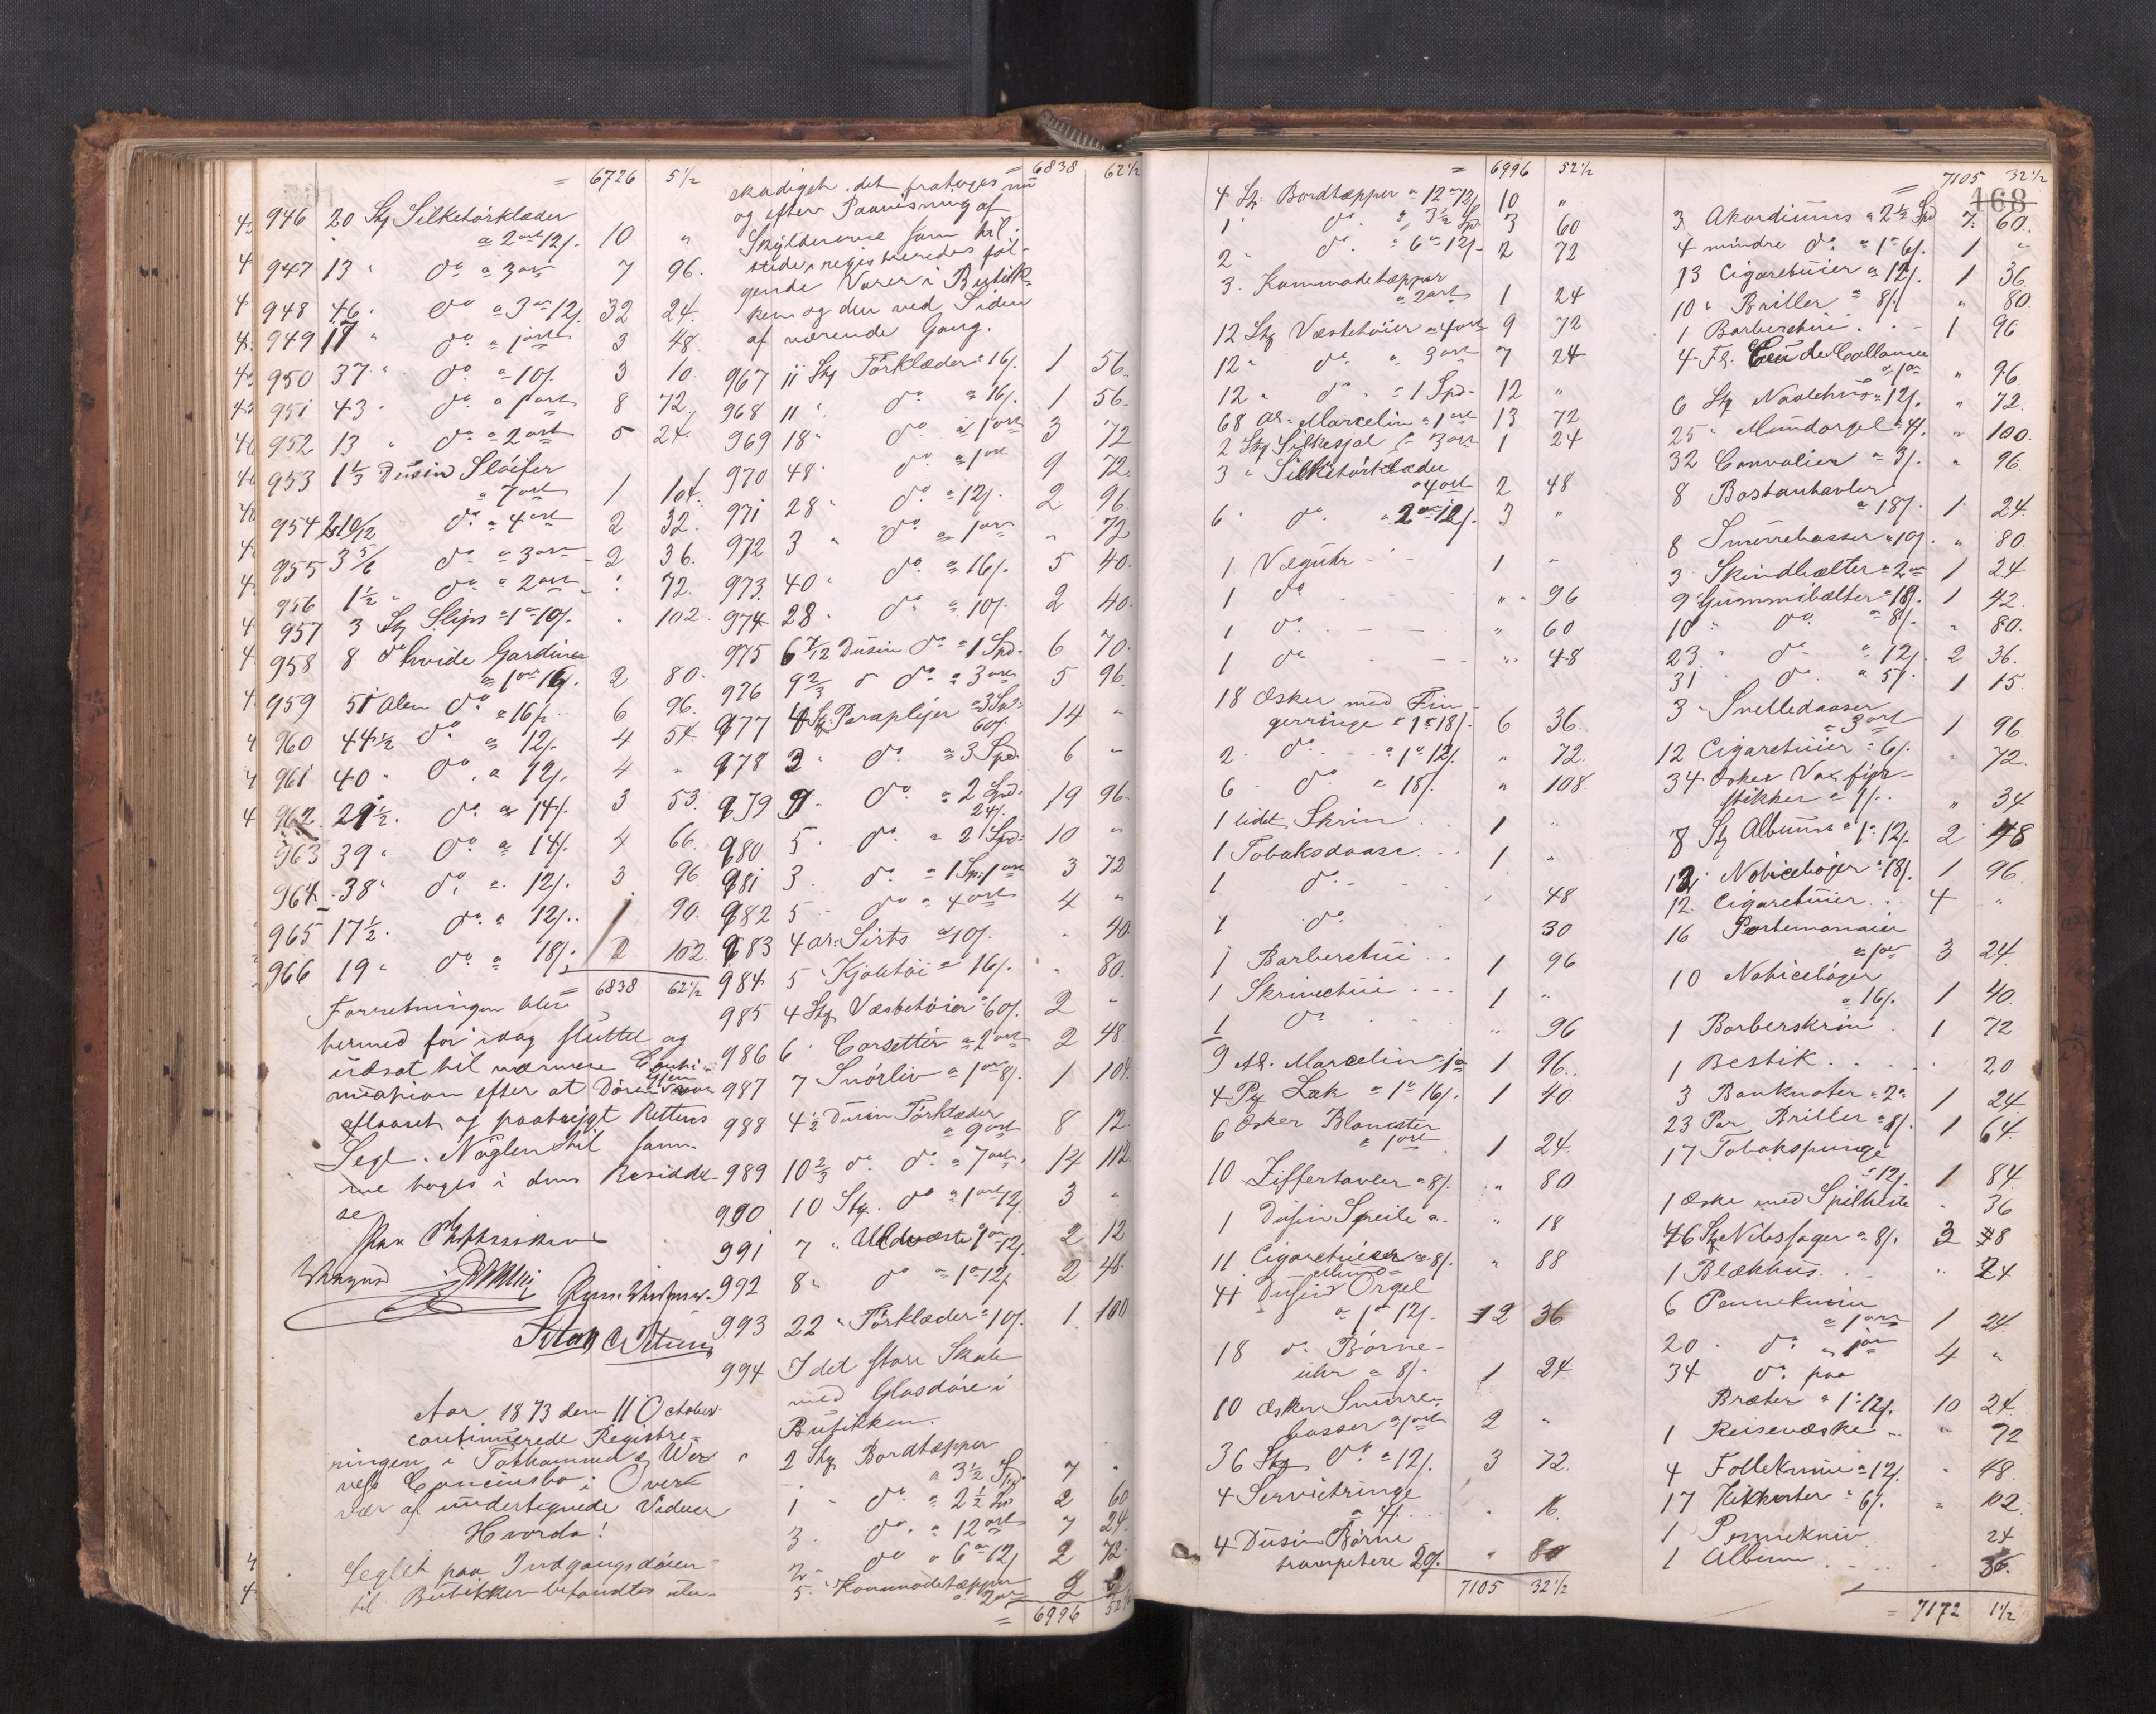 = 6726 5 1/2
946 20 Stk Silketörklæder
a 2 ort 12 s. 10 "
947 13 " do a 3 ort 7 96.
948 46. do a 3 ort 12 s. 32 24.
949 17 " do a 1 ort 3 48
950 37. do a 10 s. 3 10.
951 43. do a 1 ort 8 72.
952 13 " do a 2 ort 5 24.
953 1 1/3 Dusin Slöifer
a 7 ort 1 104.
954 2 10/12 do a 4 ort 2 32.
955 3 5/6 do a 3 ort - 2 36.
956 1 1/2 " do a 2 ort - " 72.
957 3 Stk Slips a 1 ort 10 s. . 102.
958 8 do hvide Gardiner
a 1 ort 16 s. 2 80.
959 51 Alen do a 16 s. 6 96.
960 44 1/2 do a 12 s. 4 54
961 40 " do. a 12 s. 4 "
962 29 1/2. do a 14 s. 3 53.
963 39 " do. a 14 s. 4 66.
964. 38 " do. a 12 s. 3 96
965 17 1/2. do. a 12 s. 1 90.
966 19 " do a 18 s. 2 102.
= 6838 62 1/2
Forretningen blev
hermed for idag sluttet og
udsat til nærmere Conti-
nuation efter at Dören igjen var
aflaaset og paatrykt Rettens
Segl. Nöglen til samme
tages i dens Residdel-
se
Aar 1873 den 11 October
continuerede Registre-
ringen i
vær af undertegnede Vidner
Hvorda!
Seglet paa Indgangsdören
til Butikken befandtes ube-
= 6838 62 1/2
skadiget. det fratoges nu
og efter Paavisning af
Skyldnerne som til-
stede, registreredes föl-
gende Varer i Butik-
ken og den ved Siden
af værende Gang.
967 11 Stk Törklæder a 16 s. 1 56.
968 11 " do a 16 s. 1 56.
969 18 " do a 1 ort 3 72
970 48 " do a 1 ort 9 72.
971 28 " do. a 12 s. 2 96.
972 3 " do a 1 ort " 72
973. 40 " do. a 16 s. 5 40.
974 28 " do. a 10 s. 2 40.
975 6 7/12 Dusin do a 1 Spd. 6 70.
976 9 2/3 " do a 3 ort 5 96.
977 4 Stk Paraplyer a 3 Spd.
60 s. 14 "
978 2 " do. a 3 Spd. 6 "
979 9 " do. a 2 Spd.
24 s. 19 96
980 5. do. a 2 Spd. 10 "
981 3. do. a 1 Sp. 1 ort 3 72
982 5 " do a 4 ort 4 "
983 4 al. Sirts a 10 s. . 40
984 5 " Kjoletöi a 16 s. . 80.
985 4 Stk Vestetöier a 60 s. 2 "
986 6 " Corsetter a 2 ort 2 48.
987 7 Snörliv a 1 ort 8 s. 1 104.
988 4 1/2 Dusin Törklæder
a 9 ort 8 12.
989 10 2/3 do. do. a 7 ort. 14 112.
990 10 Stk. do a 1 ort 12 s. 3 "
991 7 " Uldveste 1 ort 12 s. 2 12
992 8 " do a 1 ort 12 s. 2 48.
993 22 " Törklæder a 10 s. 1 100
994 I det store Skab
med Glasdöre i
Butikken.
" 2 Stk Bordtæpper
a 3 1/2 Spd. 7 "
1 " do. a 2 1/2 Sp 2 60
3. do. a 12 ort 7 24.
2 " do a 6 ort 12 s. 2 72.
5. Kommodetæpper
a 2 ort 2
= 6996 52 1/2
= 6996 52 1/2
4 Stk. Bordtæpper a 12 ort 12 s. 10 "
1 " do. a 3 1/2 Sp. 3 60
2 " do. a 6 ort 12 s. 2 72
3. Kommodetæpper
a 2 ort 1 24
12 Stk Vestetöier a 4 ort 9 72
12 " do. a 3 ort 7 24
12 " do. a 1 Spd. 12 "
68 Al. Marcelin a 1 ort 13 72
2 Stk Silkesjal a 3 ort 1 24
3 " Silketörklæder
a 4 ort 2 48
6 " do. a 2 ort 12 s. 3 "
1 Væguhr - 1 "
1 do " 96
1 do. - - " 60
1 do - - " 48
18 Æsker med Fin-
gerringe a 1 ort 18 s. 6 36.
2 " do. a 1 ort 12 s. " 72.
6 " do. a 18 s. " 108
1 lidet Skrin . . 1 "
1 Tobaksdaase . . 1 "
1 do. . . . 48
1 do. 30
1 Barberetui . . 1 96
1 Skriveetui . . . 1 "
1 do " 96
9 Al. Marcelin a 1 ort 1 96.
4 Pk Lak a 1 ort 16 s. 1 40.
6 Æsker Blomster
a 1 ort 1 24.
10 Ziffertavler a 8 s. " 80.
1 Dusin Speile a. " 18
11 Cigaretuier a 8 s. " 88
41 Dusin Mund-Orgel
a 1 ort 12 s. 12 36
18 do. Börne-
uhr a 8 s. 1 24
10 Æsker Snurre-
basser a 1 ort 2 "
36 Stk do. a 12 s. 3 72.
4 Servietringe
a 4 s. . 16.
4 Dusin Börne
trompetere 20 s. " 80
7105 32 1/2
= 7105 32 1/2
168
3 Akordiums a 2 1/2 Spd 7. 60.
4 mindre do. a 1 ort 6 s. 1 "
13 Cigaretuier a 12 s. 1 36.
10 " Briller a 8 s. " 80.
1 Barberetui . . - 1 96
4 Fl. Eau de Collonne
a 1 ort " 96.
6 Stk Naalehus a 12 s. " 72.
25 " Mundorgel a 4 s. " 100.
32 Convolier a 3 s. " 96.
8 Bostantavler
a 18 s. 1 24.
8 Snurrebasser a 10 s. " 80.
3 Skindbælter a 2 ort 1 24
9 Gummibælter a 18 s. 1 42.
10 " do. a 8 s. " 80.
23. " do. a 12 s. 2 36.
31 " do. a 5 s. 1 15.
3 " Snelledaaser
a 3 ort 1 96
12 Cigaretuier a 6 s. " 72.
34 Æsker Vox fyr-
stikker a 1 s. . " 34
8 Stk Albums a 1 ort 12 s. 2 48
12 Noticeböger a 18 s. 1 96.
12. Cigaretuier . . 4 "
16 Portemonaier
a 1 ort 3 24.
10 Noticeböger
a 16 s. 1 40.
1 Barberskrin . 1 72
1 Bestik . . . . . 20
3 Banknoter a 2 ort 1 24
23 Par Briller a 8 s. 1 64.
17 Tobakspunge
a 12 s. 1 84.
1 Æske med " 36
46 Stk a 8 s. 3 8
1 Blækhus . . - " 24
6 Penneknive
a 1 ort 1 24.
20 . do. a 1 ort 4 "
34 do. paa
Bræter a 1 ort 12 s. 10 24.
1 Reisevæske " " 72
4 Folleknive a 12 s. " 48.
17 Kikkerter a 6 s. " 102.
1 Pennekniv 24
1 Album . - - . . 36.
= 7172 1 1/2